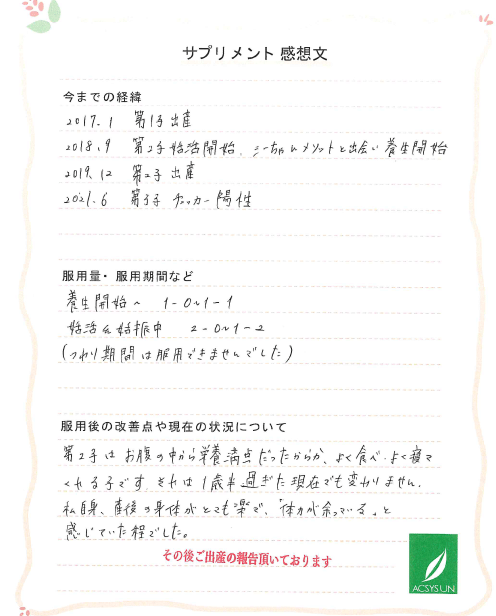 サプリメント 感想文
今までの経緯
2017.1 第1子出産
2018.9 第2子妊活開始、シーちゃんメソットと出会い養生開始
2019.12 第2子 出産
2021.6 第3子 チェッカー陽性
服用量・服用期間など
養生開始〜 1-0〜1-1
妊活&妊娠中 2-0〜1-2
(つわり期間は服用できませんでした)
服用後の改善点や現在の状況について
第2子はお腹の中から栄養満点だったからか、よく食べよく寝て
くれる子です。それは1歳半過ぎた現在でも変わりません。
私自身、産後の身体がとても楽で、「体力が余っている」と
感じていた程でした。
その後ご出産の報告頂いております
ACSYSUN